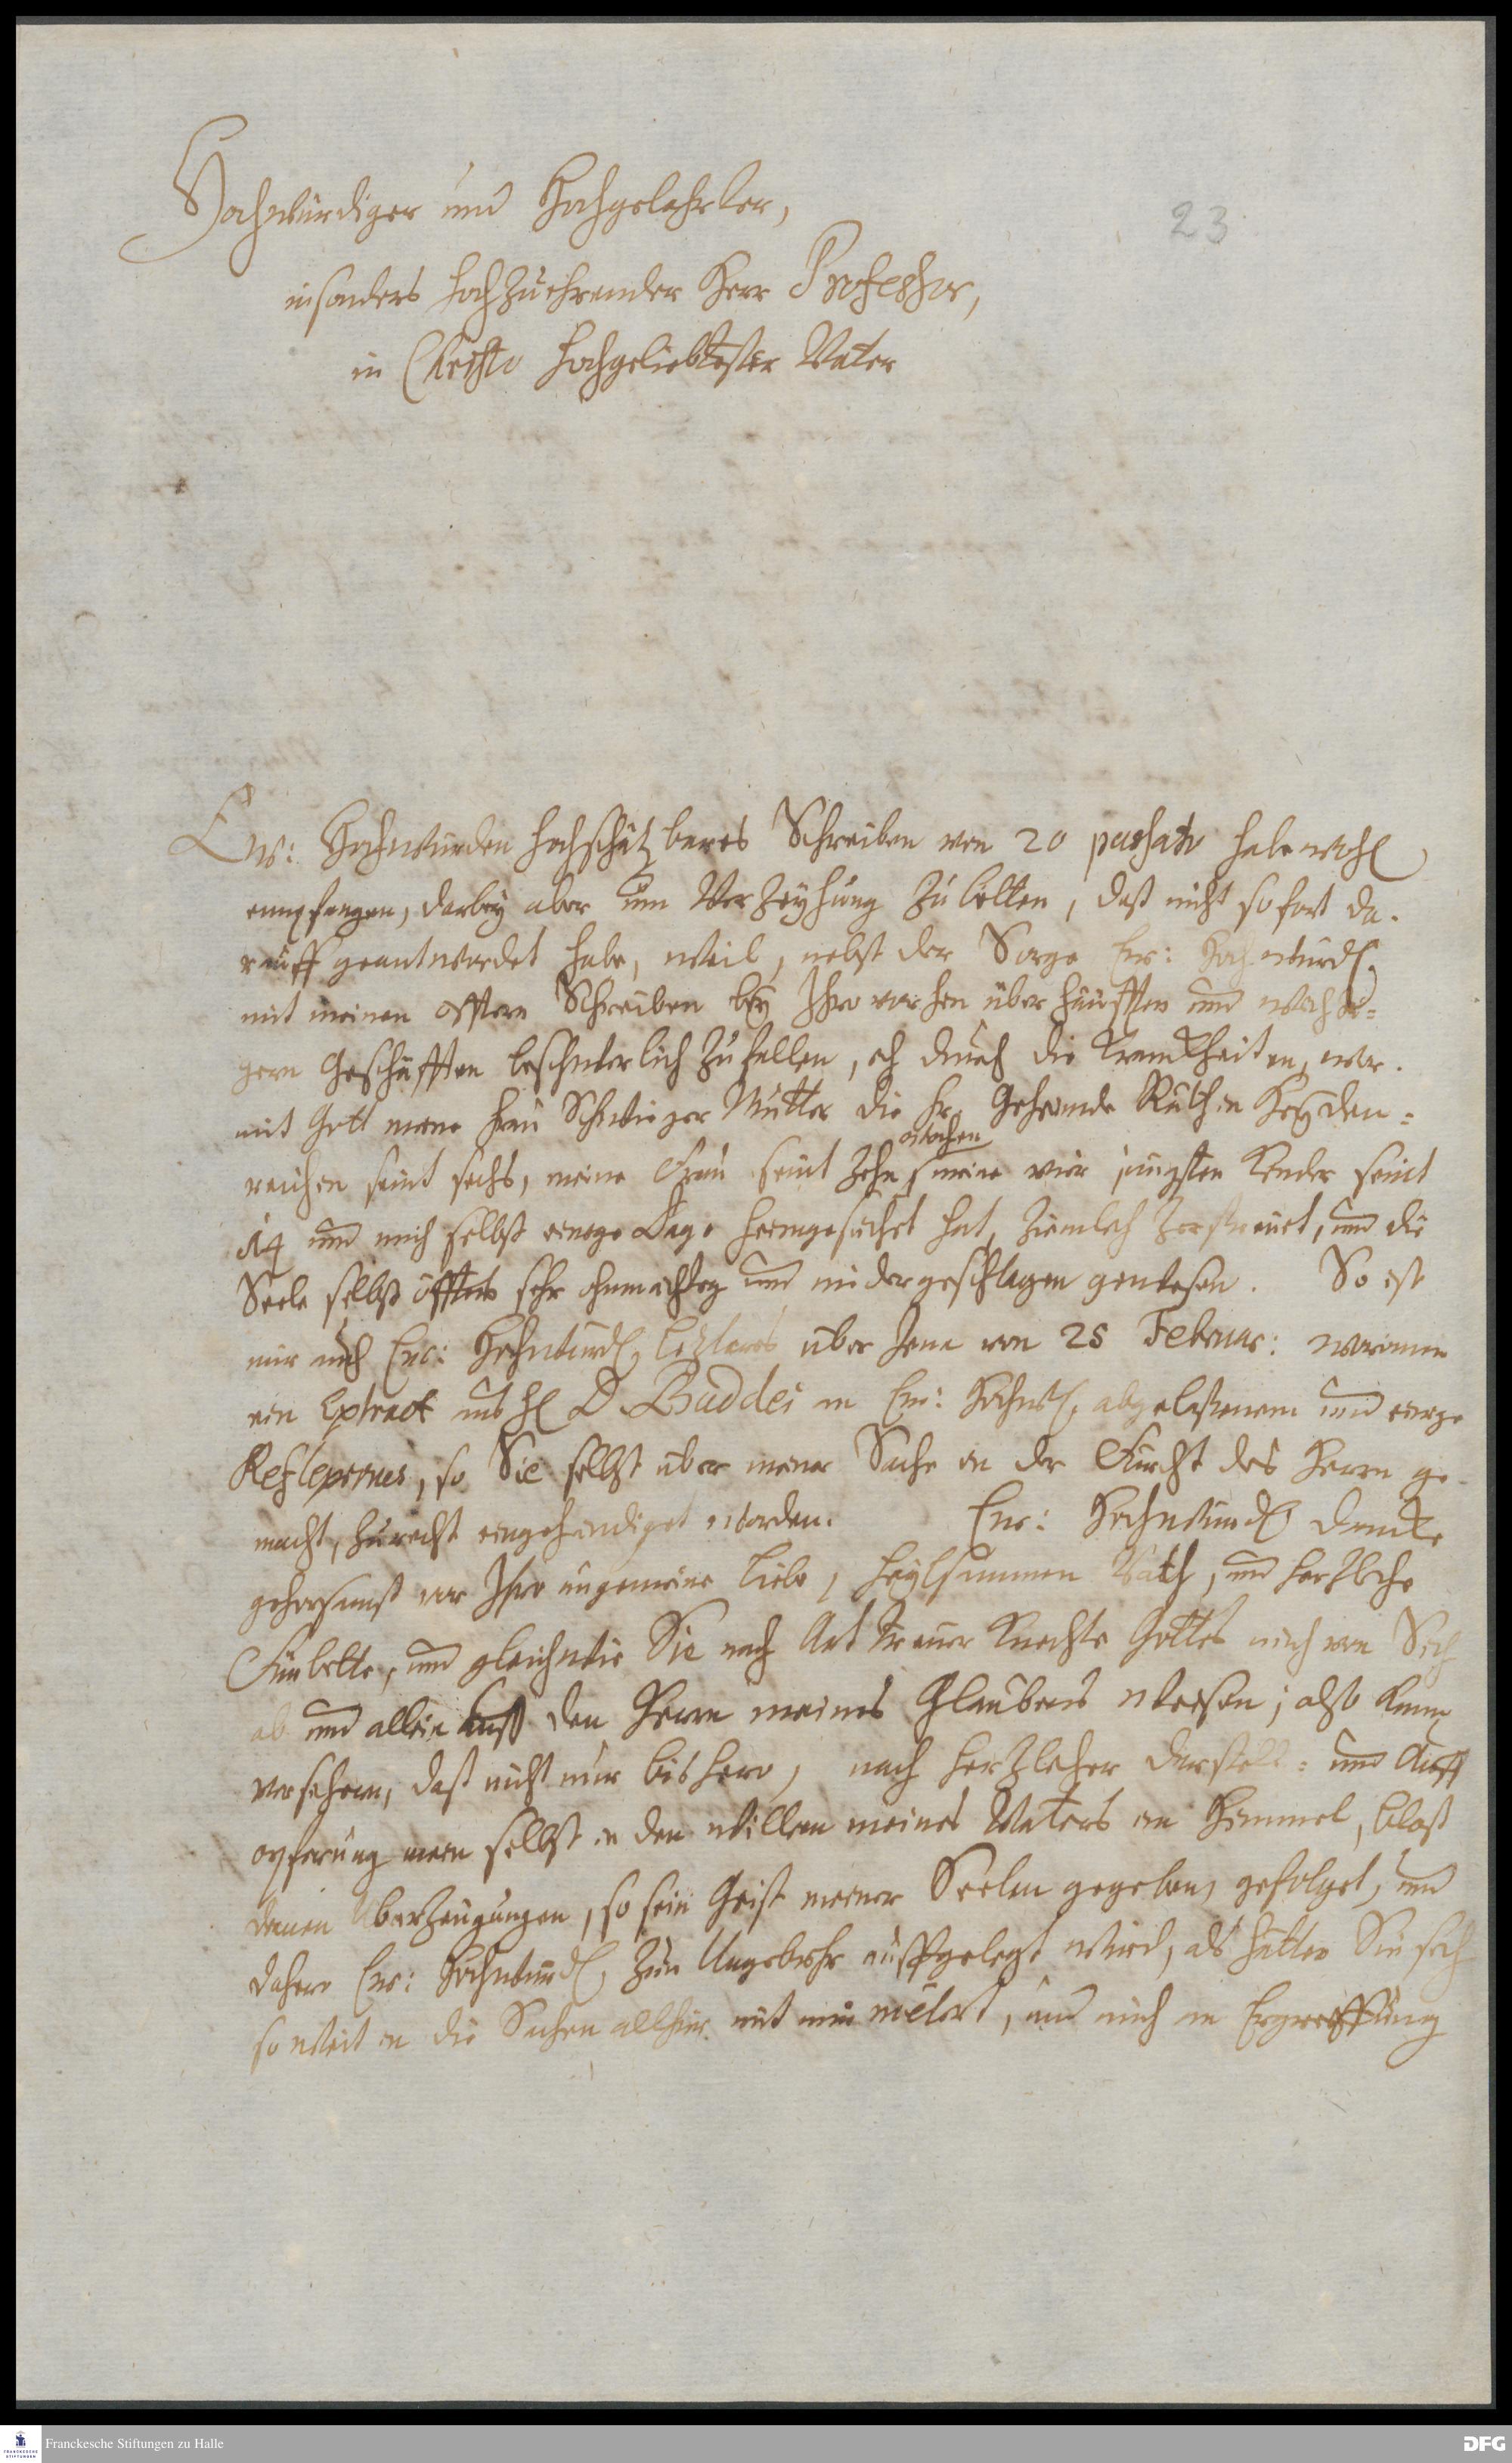 Hochwürdiger und Hochgelahrter,
23
insonders hochzuehrender Herr Professor,
in Christo hochgeliebtester Vater
Ew: Hochwürden hochschätzbares Schreiben von 20 passato habe wohl
empfangen, darbey aber um Verzeyhung zu bitten, daß nicht sofort da-
rauff geantwordet habe, weil, nebst der Sorge Ew: Hochwürd.
mit meinen offtern Schreiben bey Ihro vorhin überhäufften und wichti=
gern Geschäfften beschwerlich zu fallen, ich durch die Kranckheiten, wo-
mit Gott meine Frau Schwieger Mutter die Fr. Geheimde Räthin Heyden=
reichen seint sechs, meine Frau seint zehn wochen, meine vier jüngsten Kinder seint
14 und mich selbst einige Tage heimgesuchet hat, ziemlich zerstreuet, und die
Seele selbst öffters sehr ohnmächtig und niedergeschlagen gewesen. So ist
mir auch Ew: Hochwürd. letzteres über Jena von 25 Februar: worinnen
ein Extract aus H. D. Buddei an Ew: Hochw. abgelaßenem und einige
Reflexiones, so Sie selbst über meine Sache in der Furcht des Herrn ge-
macht, zurecht eingehändiget worden. Ew: Hochwürd. dancke
gehorsamst vor Ihre ungemeine Liebe, heylsammen Rath, und hertzliche
Fürbitte, und gleichwie Sie nach Art treuer Knechte Gottes mich von Sich
ab und allein auff den Herrn meines Glaubens weisen; also kann
versichern, daß nicht nur bishero, nach hertzlicher Darstell= und Auff
opferung mein selbst in den willen meines Vaters im Himmel, bloß
denen Überzeugungen, so sein Geist meiner Seelen gegeben, gefolget, und
dahero Ew: Hochwürd. zur Ungebühr auffgelegt wird, als hätten Sie sich
so weit in die Sachen allhier mit mir meliret, und mich in Ergreiffung
Franckesche Stiftungen zu Halle
DFG